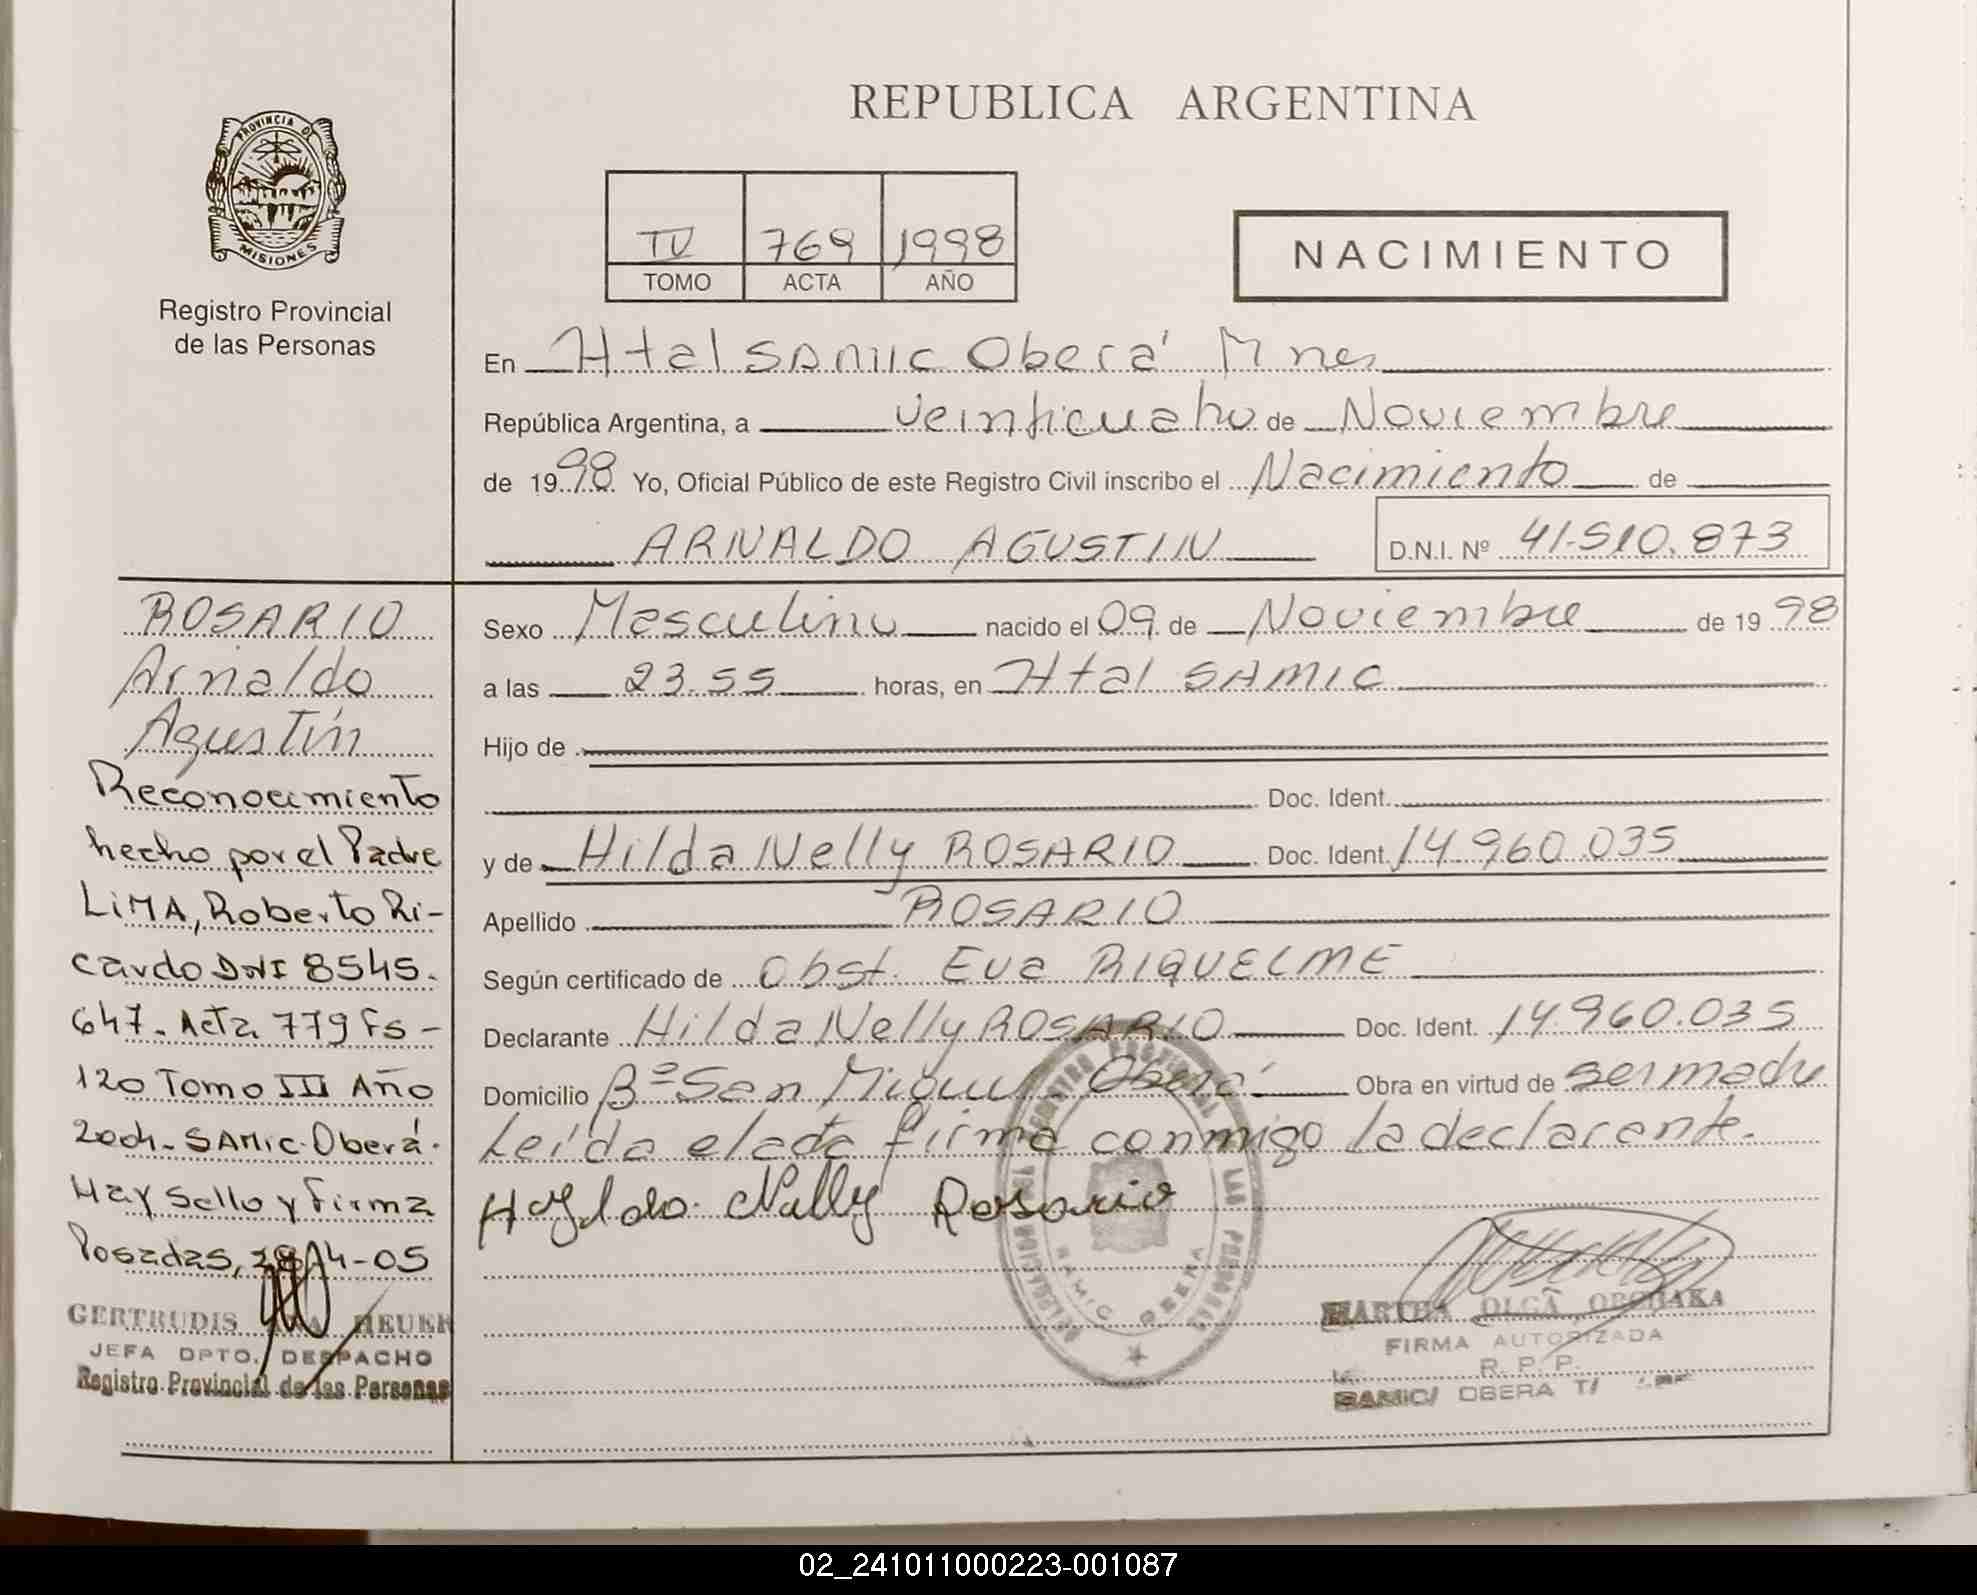 PROVINCIA D
MISIONES
Registro Provincial
de las Personas
REPUBLICA ARGENTINA
IV 769 1998
TOMO ACTA AÑO
NACIMIENTO
En Htal SAMIC Oberá Mnes
República Argentina, a veinticuatro de Noviembre
de 1998 Yo, Oficial Público de este Registro Civil inscribo el Nacimiento de
ARNALDO AGUSTIN D.N.I. Nº 41.510.873
ROSARIO
Arnaldo
Agustín
Reconocimiento
hecho por el Padre
LiMA, Roberto Ri-
cardo DNI 8545.
647- Acta 779 Fs-
120 Tomo III Año
2004- SAMIC-Oberá.
Hay Sello y firma
Posadas, 4-05
GERTRUDIS HEUER
JEFA DPTO. DESPACHO
Registro Provincial de las Personas
Sexo Masculino nacido el 09 de Noviembre de 1998
a las 23.55 horas, en Htal SAMIC
Hijo de
Doc. Ident.
y de Hilda Nelly ROSARIO Doc. Ident. 14.960.035
Apellido ROSARIO
Según certificado de Obst. Eva RIQUELME
Declarante Hilda Nelly ROSARIO Doc. Ident. 14.960.035
Domicilio Bº San Miguel Oberá Obra en virtud de ser madre
Leída el acta firma conmigo la declarante.
Nelly Rosario
REGISTRO PROVINCIAL LAS PERSONAS
SAMIC OBERA
MARTHA OLGA
FIRMA AUTORIZADA
R. P. P.
SAMIC/ OBERA
02_241011000223-001087